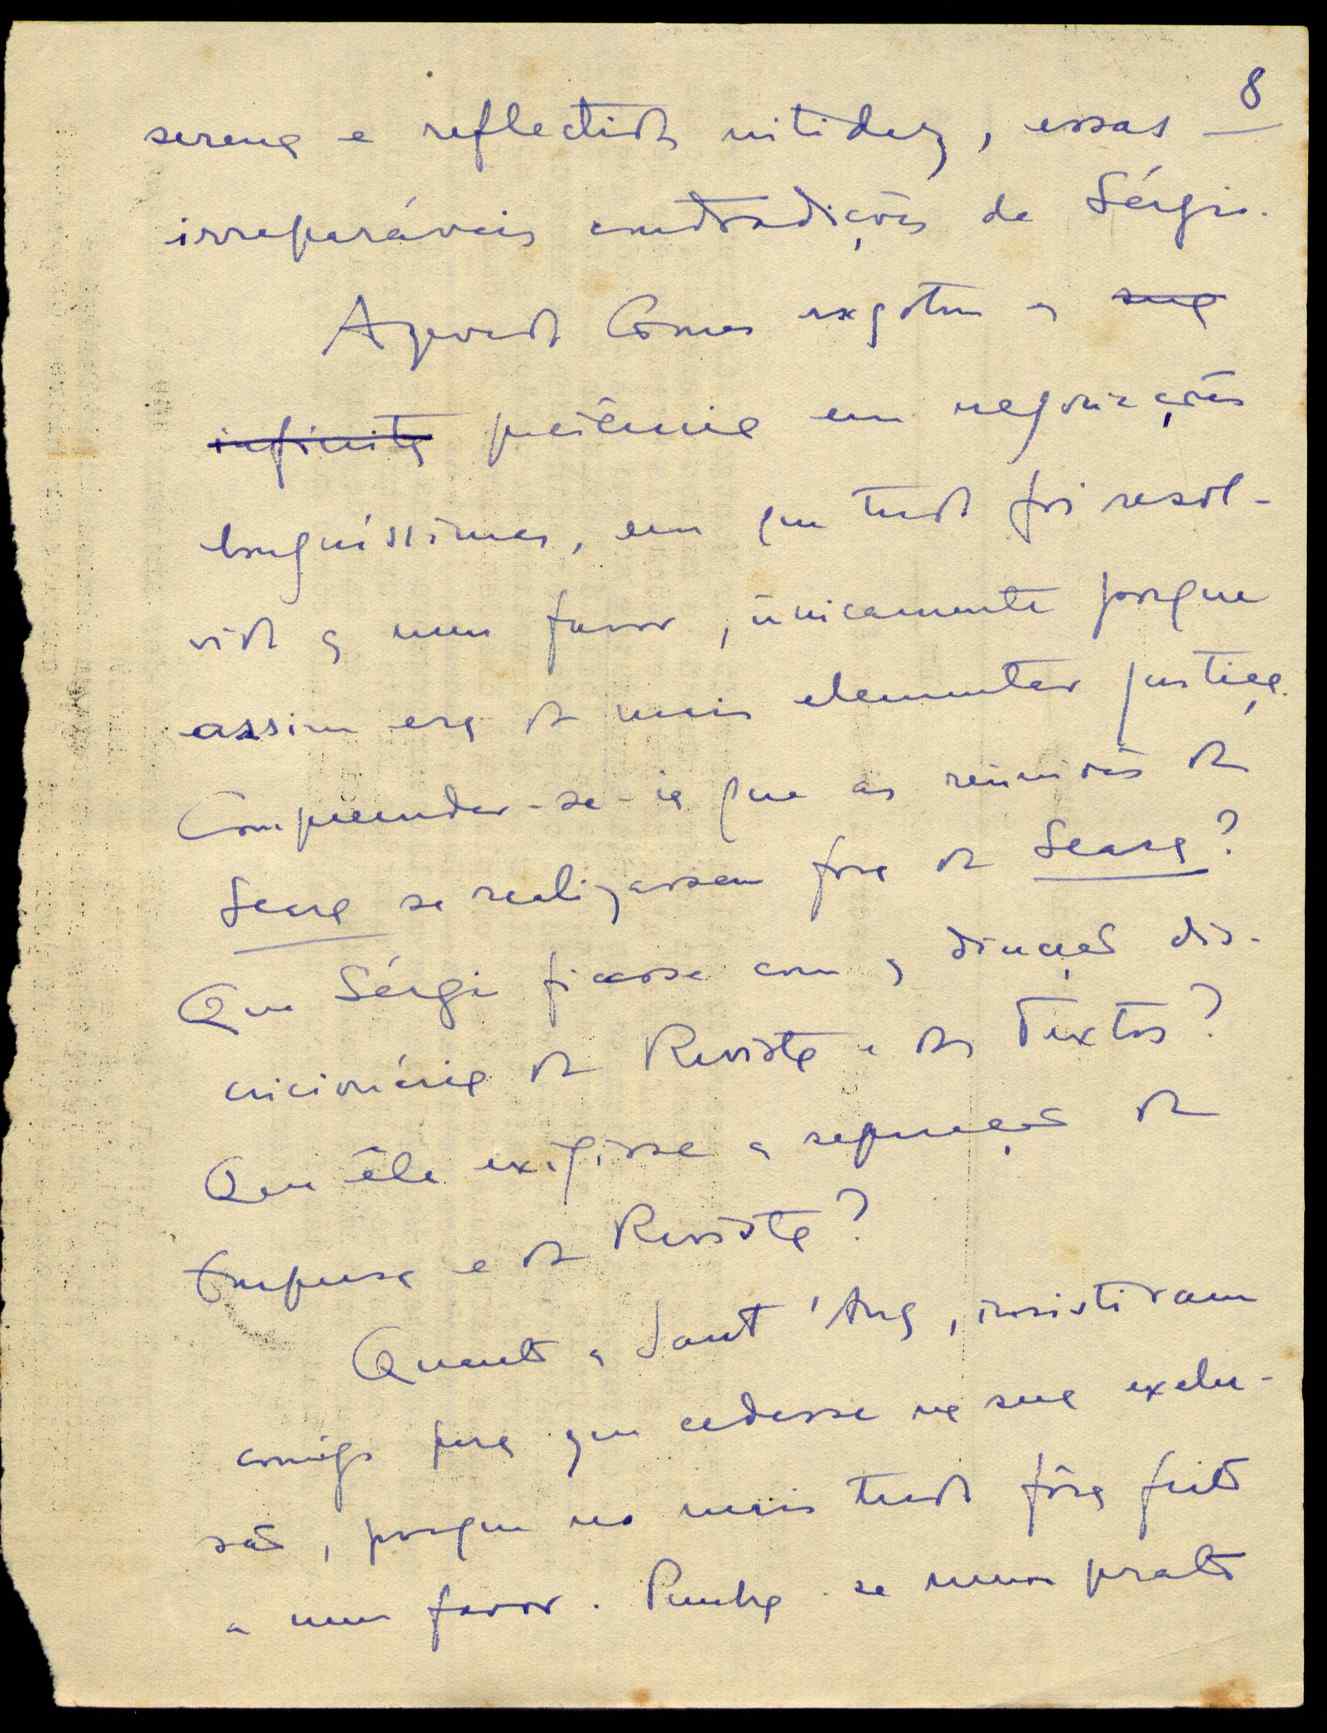 8
serena e reflectida nitidez, essas
irreparáveis contradições de Sérgio.
Azevedo Gomes esgotou a sua
infinita paciência em negociações
longuíssimas, em que tudo foi resol-
vido a meu favor, ùnicamente porque
assim era da mais elementar justiça.
Compreender-se-ia que as reüniões da
Seara se realizassem fora da Seara?
Que Sérgio ficasse com a direcção dis-
cricionária da Revista e dos Textos?
Que êle exigisse a separação da
Empresa e da Revista?
Quanto a Sant'Ana, insistiram
comigo para que cedesse na sua exclu-
são, porque no mais tudo fôra feito
a meu favor. Punha-se num prato